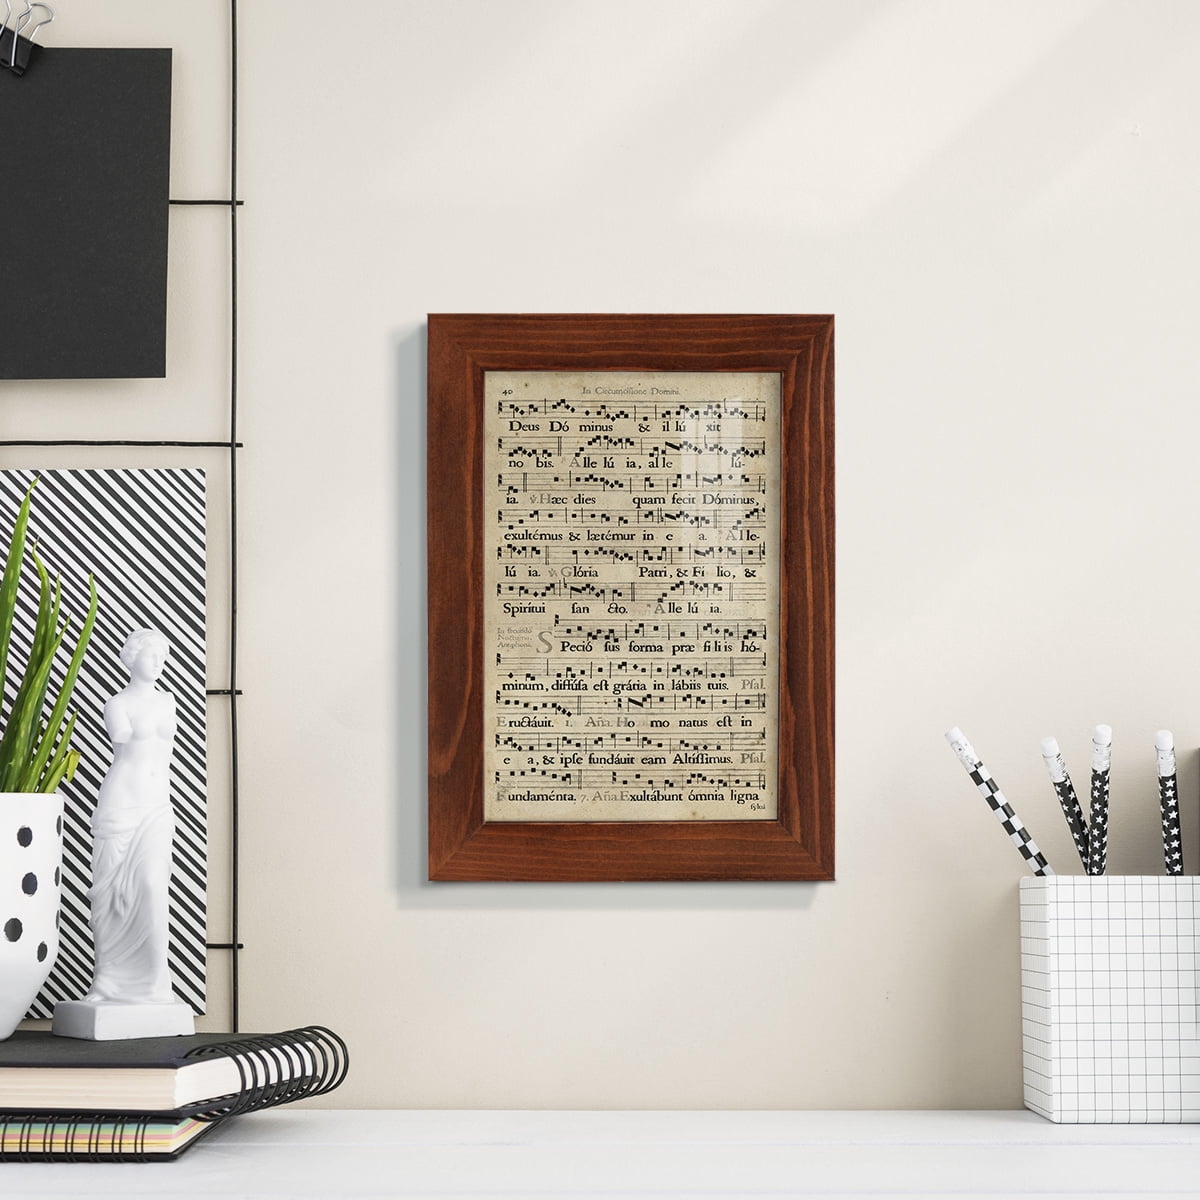 40 In Circumcisione Domini.
Deus Dó minus & il lú xit
no bis. Alle lú ia, alle lú-
ia. ℣. Hæc dies quam fecit Dóminus,
exultémus & lætémur in e a. Alle-
lú ia. ℣. Glória Patri, & Fi lio, &
Spirítui san cto. Alle lú ia.
In secundo
Nocturno.
Antiphona.
SPeció sus forma præ fi li is hó-
minum, diffúsa est grátia in lábiis tuis. Psal.
Eructáuit. 1. Aña. Ho mo natus est in
e a, & ipse fundáuit eam Altíssimus. Psal.
Fundaménta. 7. Aña Exultábunt ómnia ligna
syluá